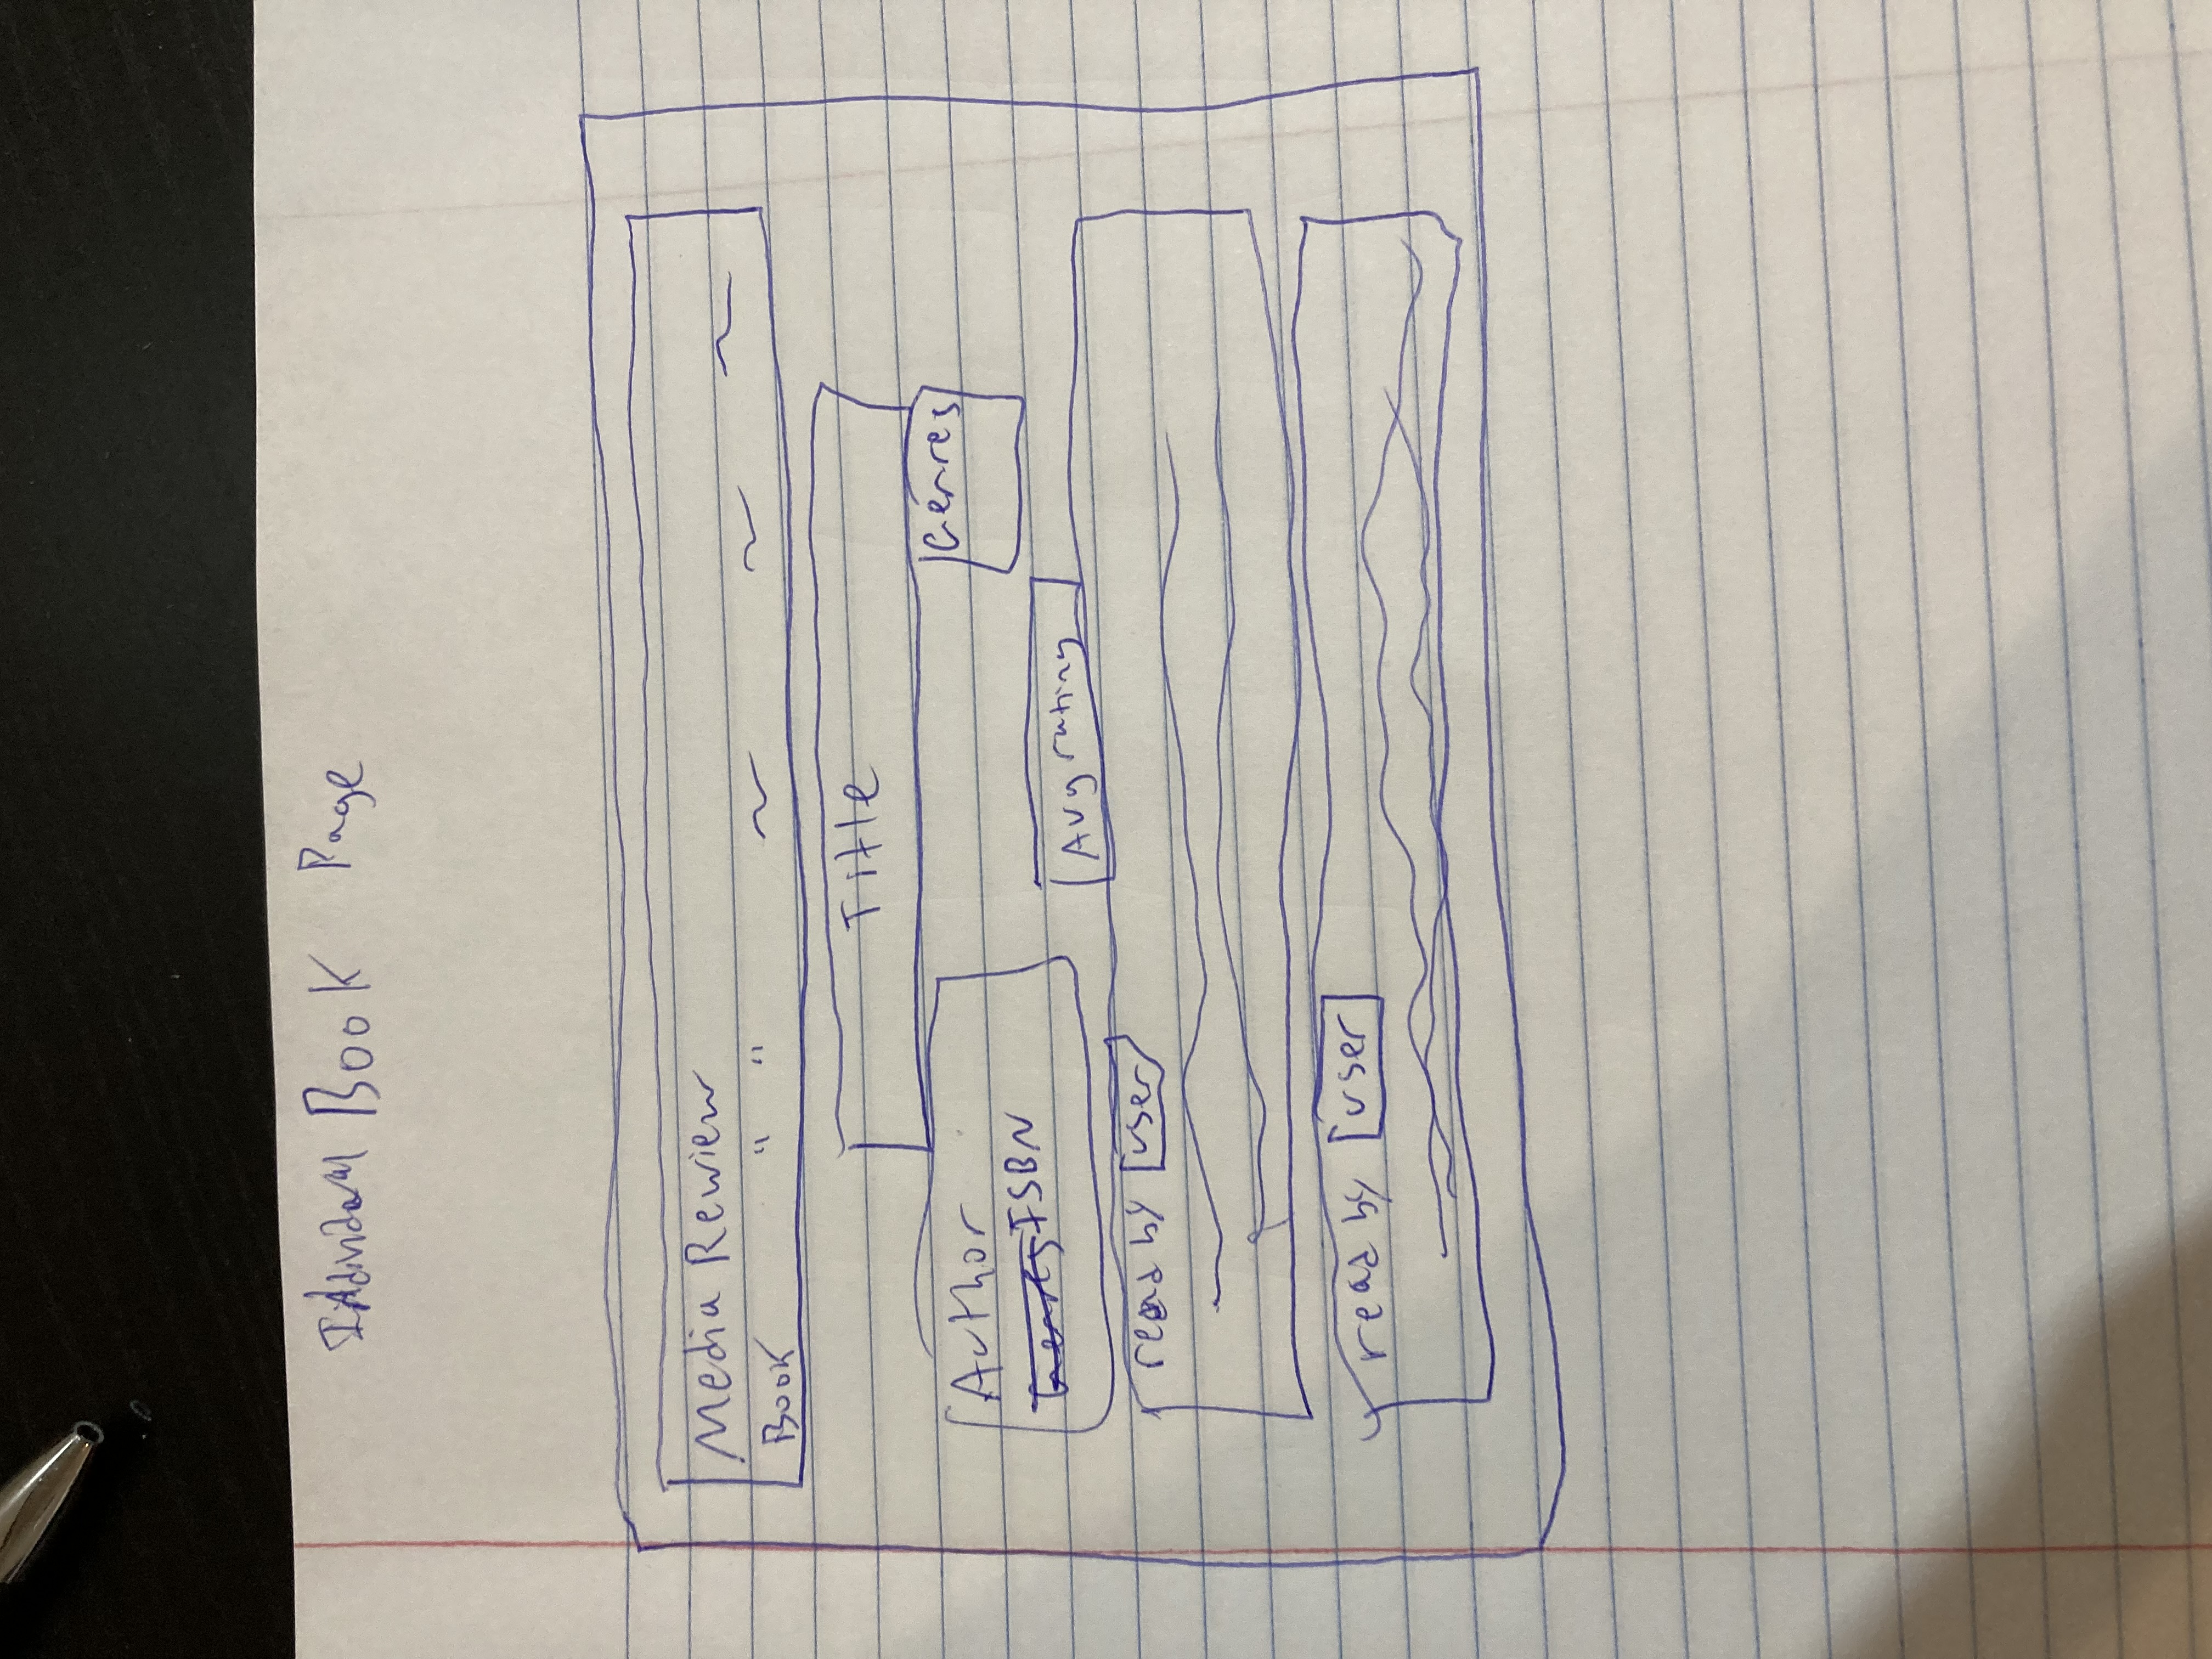 Individual Book Page
Media Rewiew
Book " " ~ ~ ~
Title
Author
Genres
ISBN
Avg rating
read by user
read by user